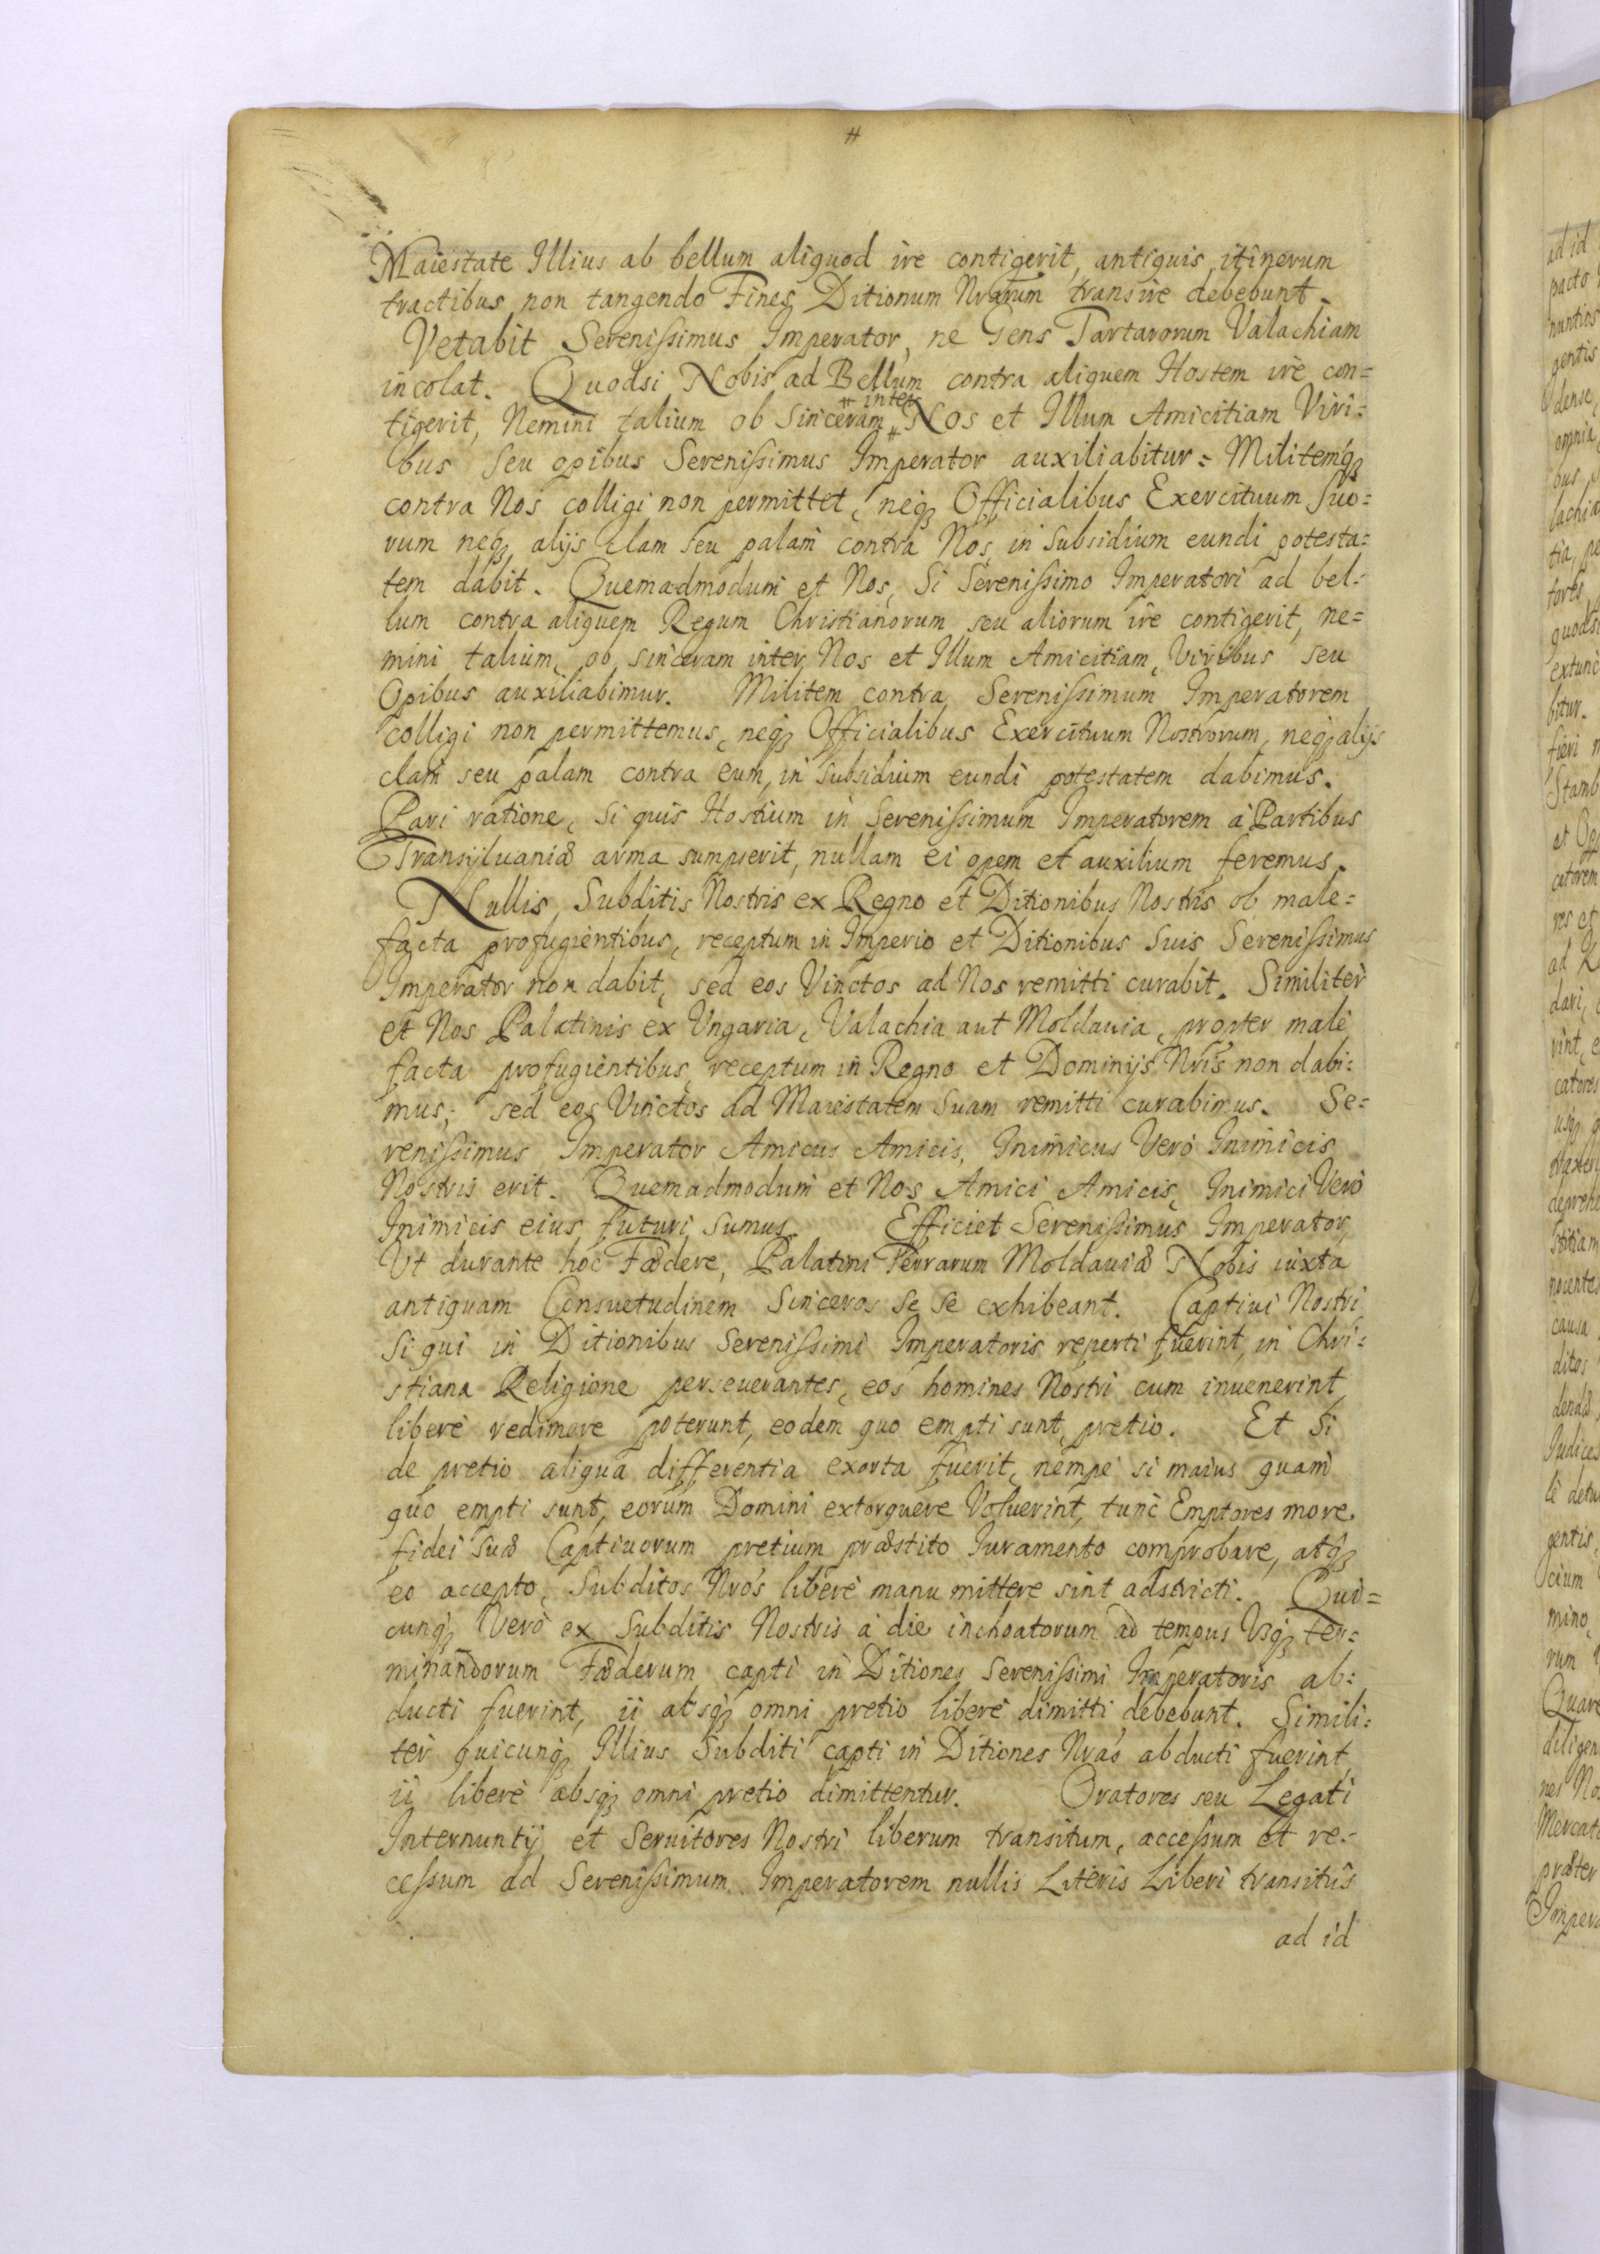 #
Maiestate Illius ab bellum aliquod ire contigerit, antiquis itinerum
tractibus non tangendo Fines Ditionum Nrarum transire debebunt.
Vetabit Serenissimus Imperator, ne Gens Tartarorum Valachiam
incolat. Quodsi Nobis ad Bellum contra aliquem Hostem ire con=
# inter
tigerit, Nemini talium ob sinceram # Nos et Illum Amicitiam Viri=
bus seu opibus Serenissimus Imperator auxiliabitur: Militemq3
contra Nos colligi non permittet, neq3 Officialibus Exercituum Suo=
rum neq3 alijs clam seu palam contra Nos in subsidium eundi potesta=
tem dabit. Quemadmodum et Nos, Si Serenissimo Imperatori ad bel=
lum contra aliquem Regum Christianorum seu aliorum ire contigerit, ne=
mini talium, ob sinceram inter Nos et Illum Amicitiam, Viribus seu
Opibus auxiliabimur. Militem contra Serenissimum Imperatorem
colligi non permittemus, neq3 Officialibus Exercituum Nostrorum, neq3 alijs
clam seu palam contra eum, in subsidium eundi potestatem dabimus.
Pari ratione, si quis Hostium in Serenissimum Imperatorem à Partibus
Transyluaniæ arma sumpserit, nullam ei opem et auxilium feremus.
Nullis Subditis Nostris ex Regno et Ditionibus Nostris ob male=
facta profugientibus, receptum in Imperio et Ditionibus Suis Serenissimus
Imperator non dabit, sed eos Vinctos ad Nos remitti curabit. Similiter
et Nos Palatinis ex Vngaria, Valachia aut Moldauia, propter malè
facta profugientibus receptum in Regno et Dominijs Nris non dabi=
mus; sed eos Vinctos ad Maiestatem Suam remitti curabimus. Se=
renissimus Imperator Amicus Amicis, Inimicus Verò Inimicis
Nostris erit. Quemadmodum et Nos Amici Amicis, Inimici Verò
Inimicis eius futuri sumus. Efficiet Serenissimus Imperator,
Vt durante hoc Fædere, Palatini Terrarum Moldauiæ Nobis iuxta
antiquam Consuetudinem Sinceros se se exhibeant. Captiui Nostri
Si qui in Ditionibus Serenissimi Imperatoris reperti fuerint, in Chri=
stiana Religione perseuerantes, eos homines Nostri cum inuenerint,
liberè redimere poterunt, eodem quo empti sunt, pretio. Et Si
de pretio aliqua differentia exorta fuerit, nempe si maius quam
quo empti sunt, eorum Domini extorquere Voluerint, tunc Emptores more
fidei Suæ Captiuorum pretium præstito Iuramento comprobare, atq3
eo accepto, Subditos Nros liberè manu mittere sint adstricti. Qui=
cunq3 Verò ex Subditis Nostris à die inchoatorum ad tempus Vsq3 ter=
minandorum Fæderum capti in Ditiones Serenissimi Imperatoris ab=
ducti fuerint, ii absq3 omni pretio liberè dimitti debebunt. Simili=
ter quicunq3 Illius Subditi capti in Ditiones Nras abducti fuerint,
ii liberè absq3 omni pretio dimittentur. Oratores seu Legati
Internuntij et Seruitores Nostri liberum transitum, accessum et re=
cessum ad Serenissimum Imperatorem nullis Literis Liberi transitûs
ad id